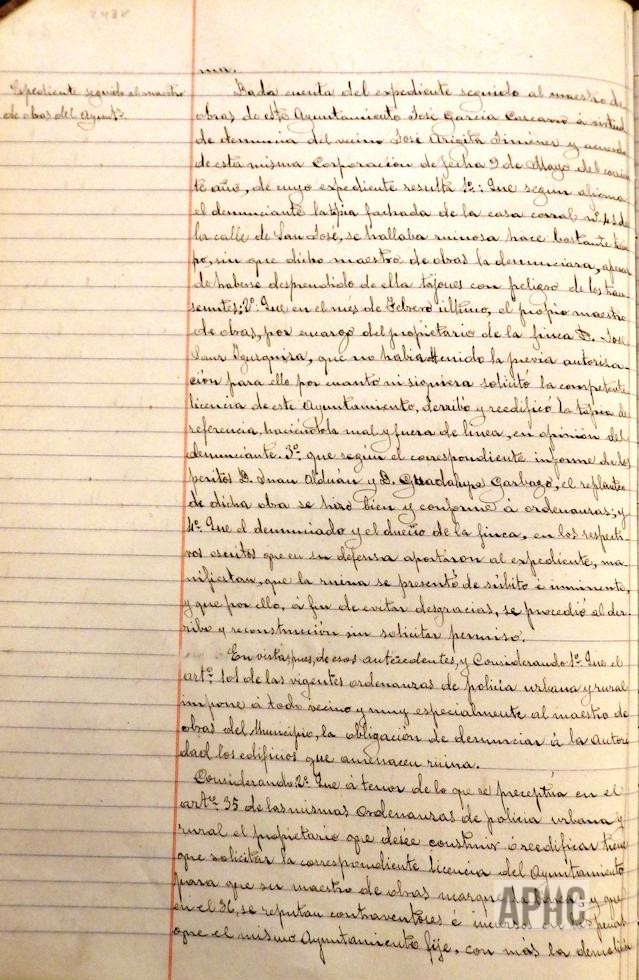 Expediente seguido al maestro
de obras del Ayuntº.
ma.
Dada cuenta del expediente seguido al maestro de
obras de éste Ayuntamiento José García Carcavo á virtud
de denuncia del vecino José Arigita Jiménez y acuerdo
de esta misma Corporación de fecha 9 de Mayo del corrien
te año, de cuyo expediente resulta 1º: Que segun afirma
el denunciante la tapia fachada de la casa corral nº 41 de
la calle de San José, se hallaba ruinosa hace bastante tiem
po, sin que dicho maestro de obras la denunciara, apesar
de haberse desprendido de ella tajones con peligro de los tran
seuntes; 2º: Que en el més de Febrero último, el propio maestro
de obras, por encargo del propietario de la finca D. José
que no había obtenido la previa autoriza-
ción para ello por cuanto ni siquiera solicitó la competente
licencia de este Ayuntamiento, derribó y reedificó la tapia de
referencia, haciéndola mal y fuera de línea, en opinión del
denunciante. 3º. que según el correspondiente informe de los
peritos D. Juan Alduán y D. Guadalupe Garbazo, el replanteo
de dicha obra se hizo bien y conforme á ordenanzas; y
4º. Que el denunciado y el dueño de la finca, en los respecti-
vos escritos que en su defensa aportaron al expediente, ma-
nifiestan, que la ruina se presentó de súbito é inminente,
y que por ello, á fin de evitar desgracias, se procedió al der-
ribo y reconstrucción sin solicitar permiso.
En vista, pues, de esos antecedentes, y Considerando 1º. Que el
artº. 101 de las vigentes ordenanzas de policía urbana y rural
impone á todo vecino y muy especialmente al maestro de
obras del Municipio, la obligación de denunciar á la Autori
dad los edificios que amenacen ruina.
Considerando 2º. Que á tenor de lo que se preceptúa en el
artº 35 de las mismas Ordenanzas de policía urbana y
rural el propietario que desée construir ó reedificar tiene
que solicitar la correspondiente licencia del Ayuntamiento
para que su maestro de obras marque la línea; y que
en el 36, se reputan contraventores é incursos en las penas
que el mismo Ayuntamiento fije, con más la demolición
APHC